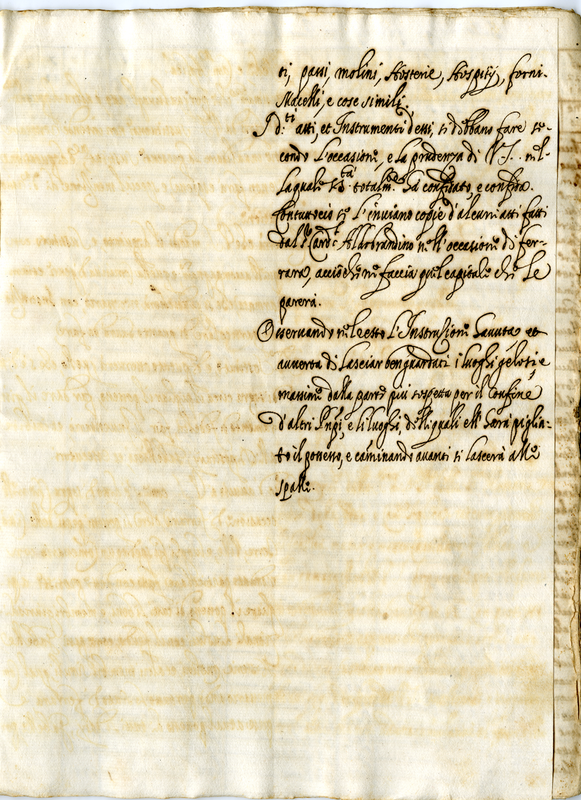 ti, passi, molini, Hosterie, Hospitij, forni,
Macelli, e cose simili.
I d.ti atti, et Instrumenti d essi, si debbano fare se-
condo l'occasioni, e la prudenza di V.S. nel-
la quale S. S.tà totalm.te ha confidato, e confida.
Con tuttociò se l'inviano copie d'alcuni atti fatti
dal Card. Aldobrandino nell'occasione di fer-
rara, acciò che ne faccia quel capitale che le
parerà.
Osservando nel resto l'Instrusione havuta et
avverta di lasciar ben guardati i luoghi gelosi e
massime dalla parte più sospetta per il Confine
d'altri Pnpi, e li luoghi, delli quali ella haverà piglia-
to il possesso, e caminando avanti si lascerà alle
spalle.